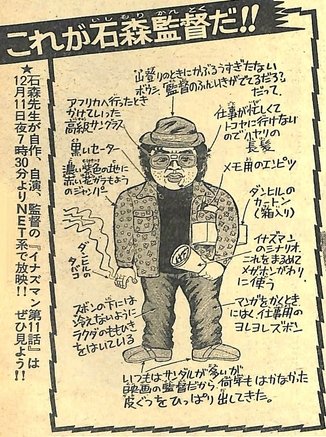 これが石森監督だ!!
いしもりかんとく
★石森先生が自作、自演、監督の『イナズマン第11話』は
12月11日夜7時30分よりNET系で放映!! ぜひ見よう!!
山登りのときにかぶろうすぎたない
ボウシ、監督のふんいきがでてるだろ?
だって。
アフリカへ行ったとき
かけていった
高級サングラス
黒いセーター
濃い紫色の地に
赤い花ガラもよう
のジャンパー
ダンヒルの
タバコ
ズボンの下には
冷えないように
ラクダのももひき
をはいている
仕事が忙しくて
トコヤに行けない
のでハヤリの
長髪
メモ用のエンピツ
ダンヒルの
カートン
(箱入り)
イナズマン
のシナリオ
これをまるめて
メガホンがわり
に使う
マンガをかくとき
にはく、仕事用の
ヨレヨレズボン
いつもはサンダルが多いが
映画の監督だから何年もはかなかった
皮ぐつをひっぱり出してきた。